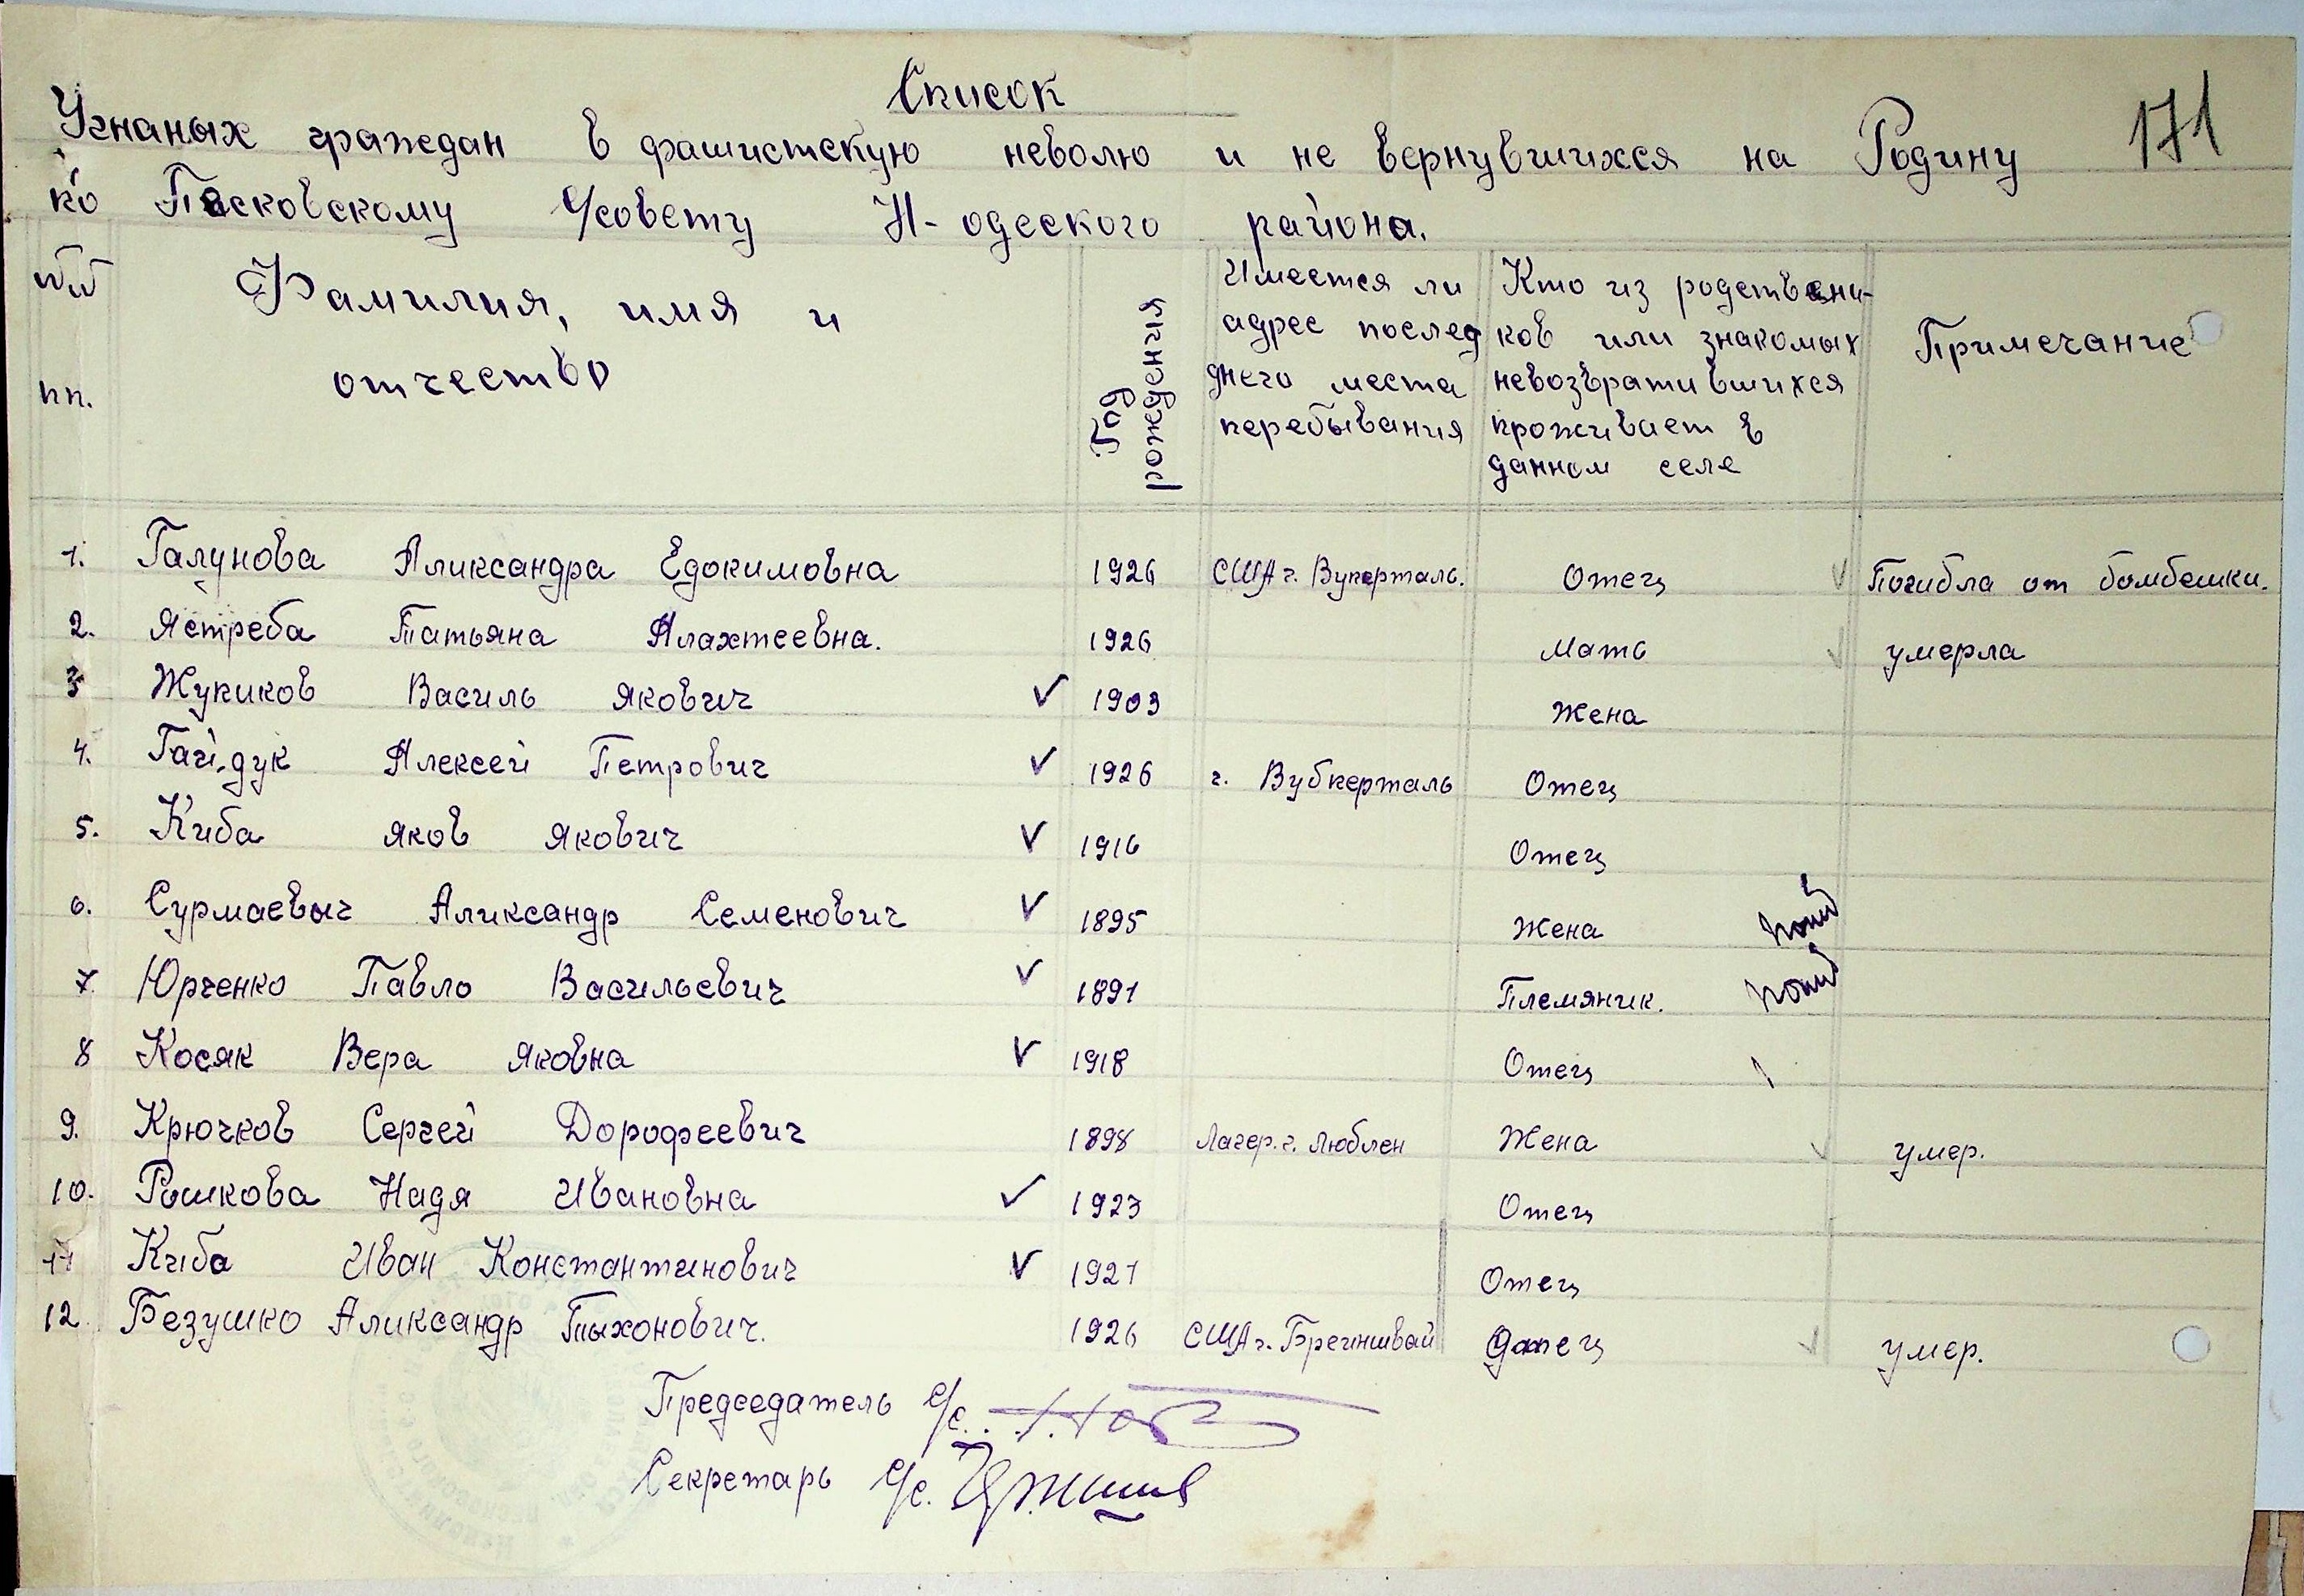 Список
171
Угнаных граждан в фашистскую неволю и не вернувшихся на Родину
по Песковскому с/совету Н-одеского района.
№№ пп.
Фамилия, имя и
отчество
Год
рождения
Имеется ли
адрес послед
днего места
перебывания
Кто из родствени-
ков или знакомых
невозвратившихся
проживает в
данном селе
Примечание
1. Галунова Аликсандра Едокимовна 1926 США г. Вукерталь. Отец Погибла от бомбешки.
2. Ястреба Татьяна Алахтеевна. 1926 Мать умерла
3 Жукиков Василь Якович 1903 Жена
4. Гайдук Алексей Петрович 1926 г. Вубкерталь Отец
5. Киба Яков Якович 1916 Отец
6. Сурмаевыч Аликсандр Семенович 1895 Жена
7. Юрченко Павло Васильевич 1891 Племяник.
8 Косяк Вера Яковна 1918 Отец
9. Крючков Сергей Дорофеевич 1898 Лагер. г. Люблен Жена умер.
10. Рошкова Надя Ивановна 1923 Отец
11 Киба Иван Константинович 1921 Отец
12. Безушко Аликсандр Тыхонович. 1926 США г. Отец умер.
Председатель с/с.
Секретарь с/с.